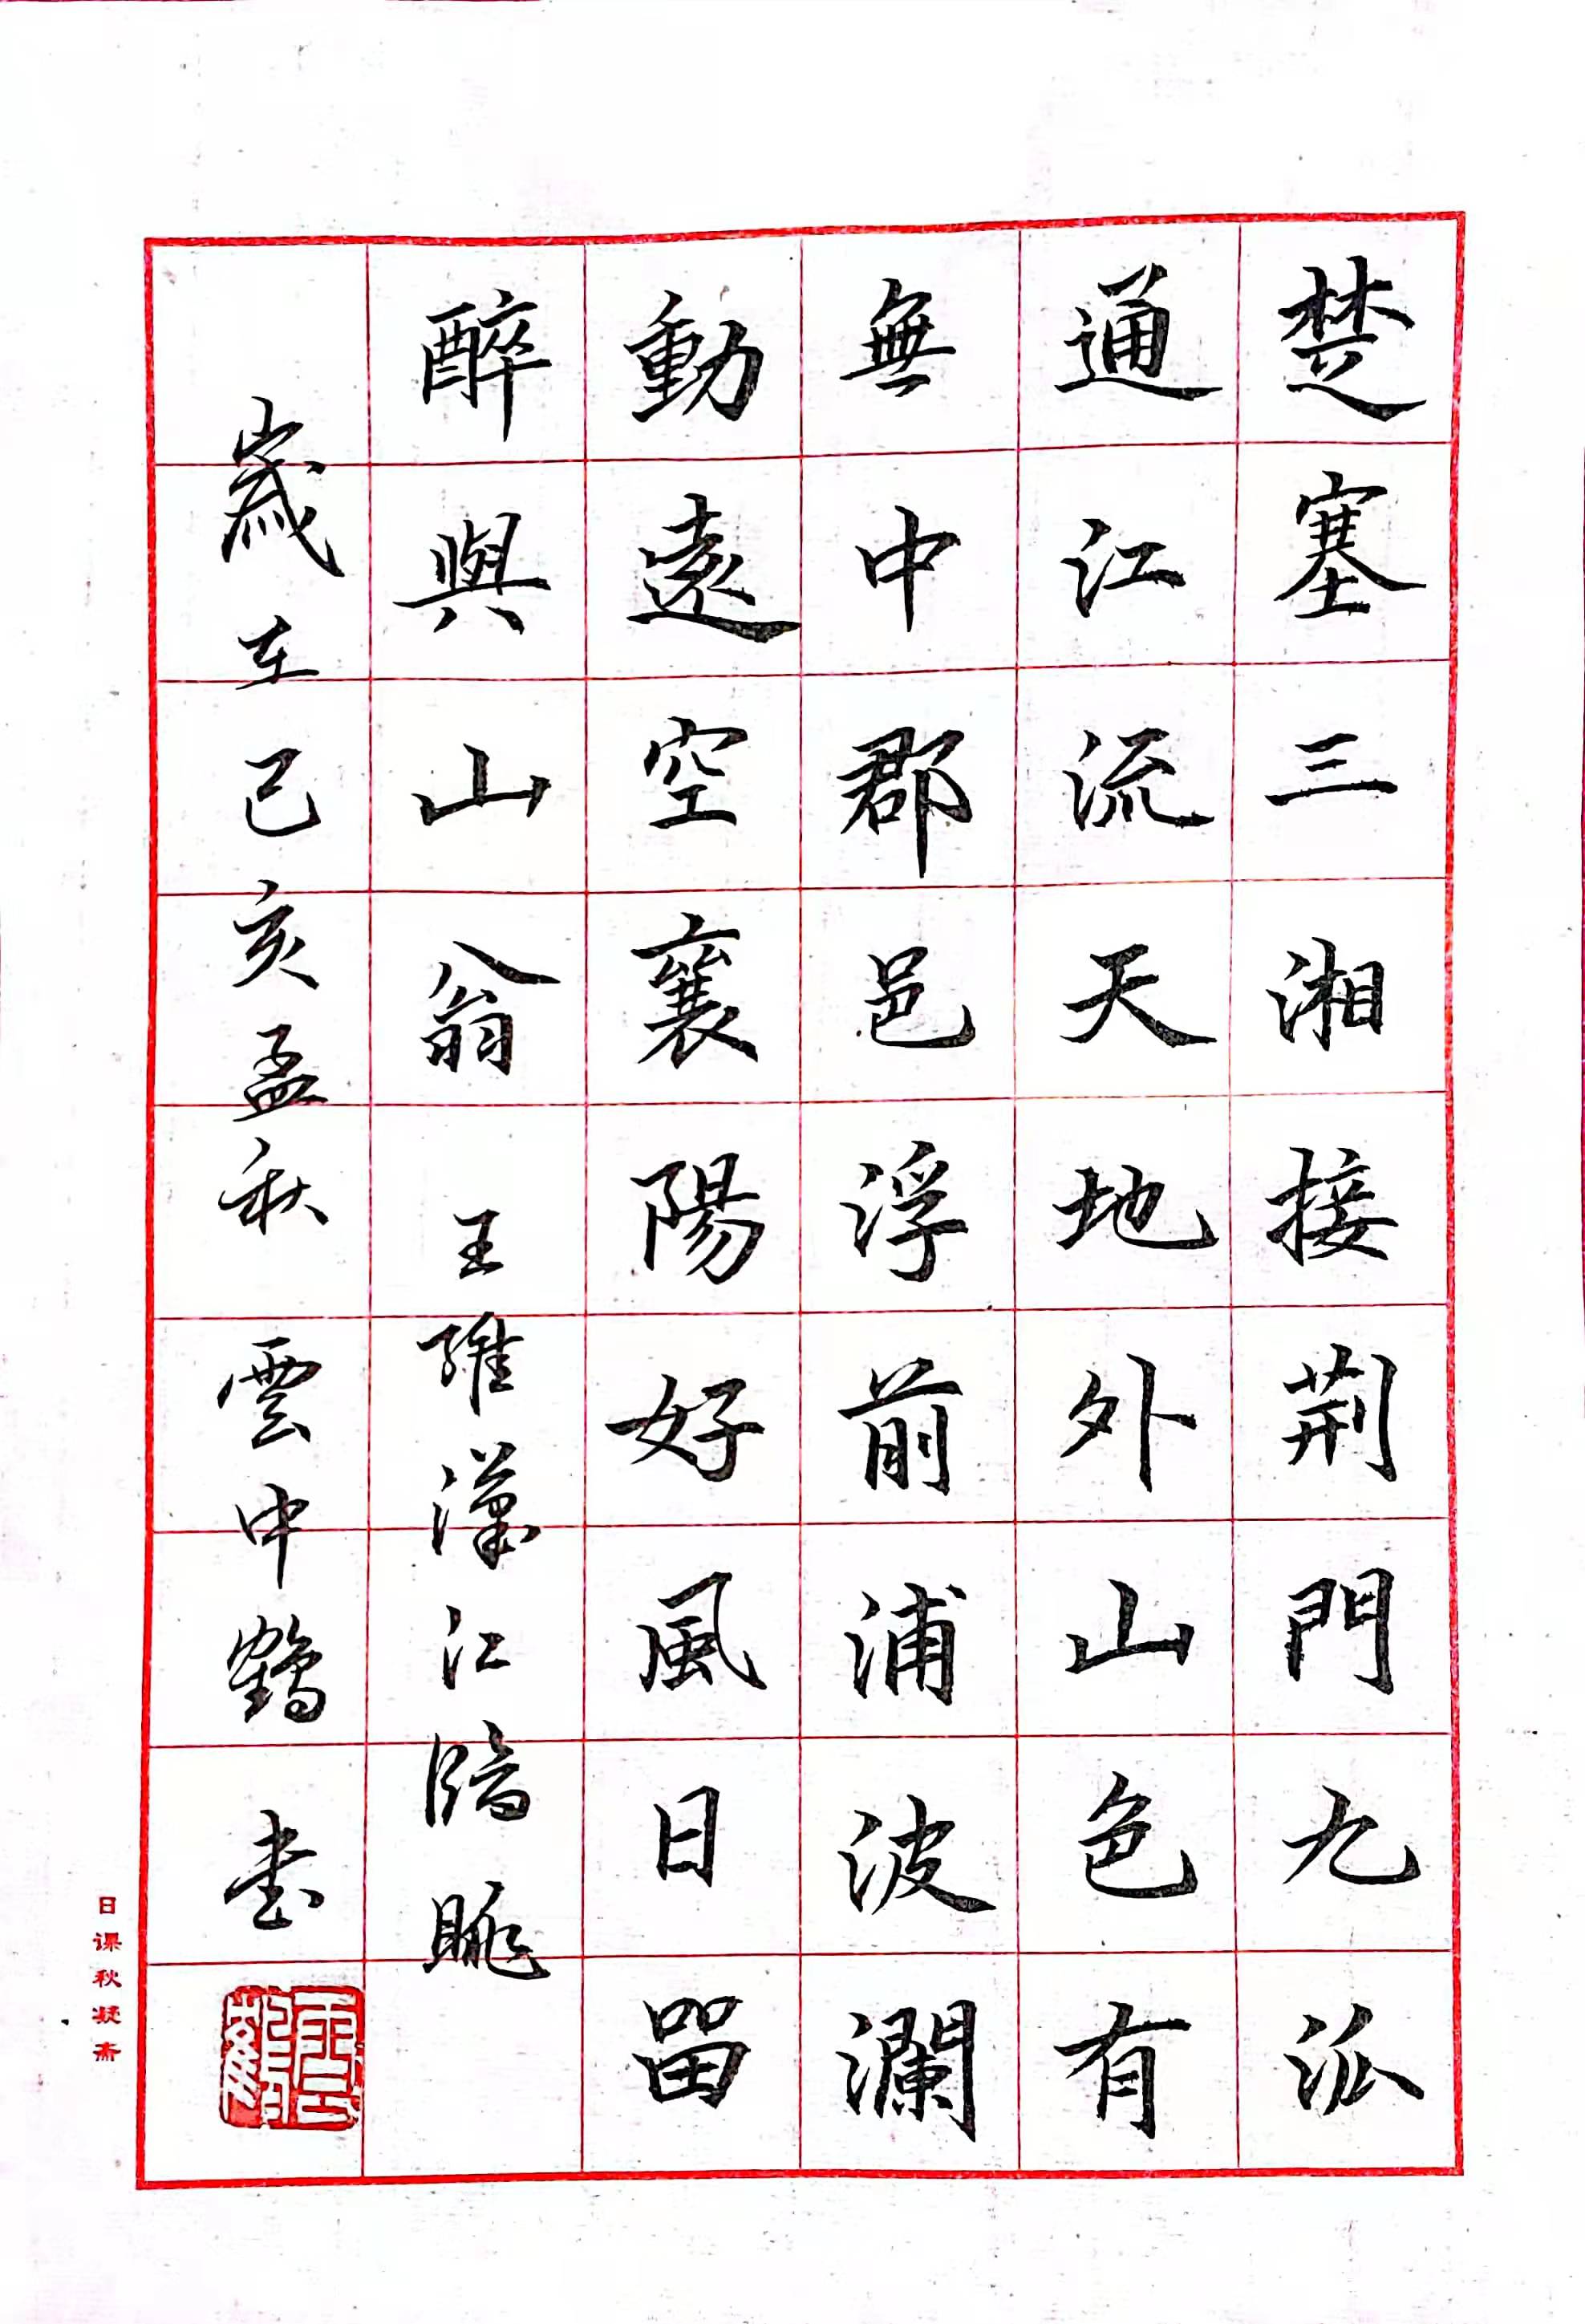 楚塞三湘接荆門九派
通江流天地外山色有
無中郡邑浮前浦波瀾
動遠空襄陽好風日留
醉與山翁 王維漢江臨眺
歲在己亥孟秋 雲中鶴 書
日课秋凝斋